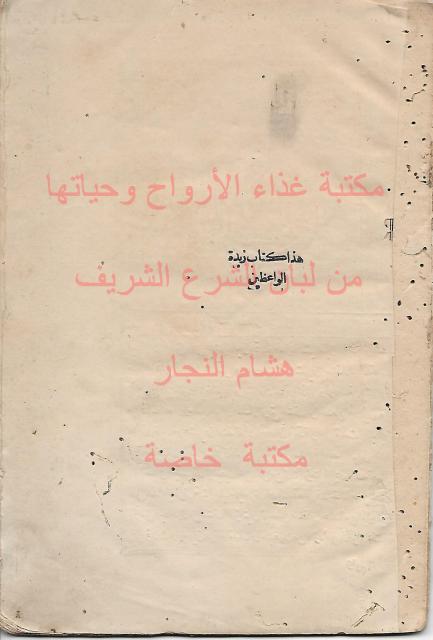 مكتبة غذاء الأرواح وحياتها
هذا كتاب زبدة
الواعظين
من لباب الشرع الشريف
هشام النجار
مكتبة خاصة